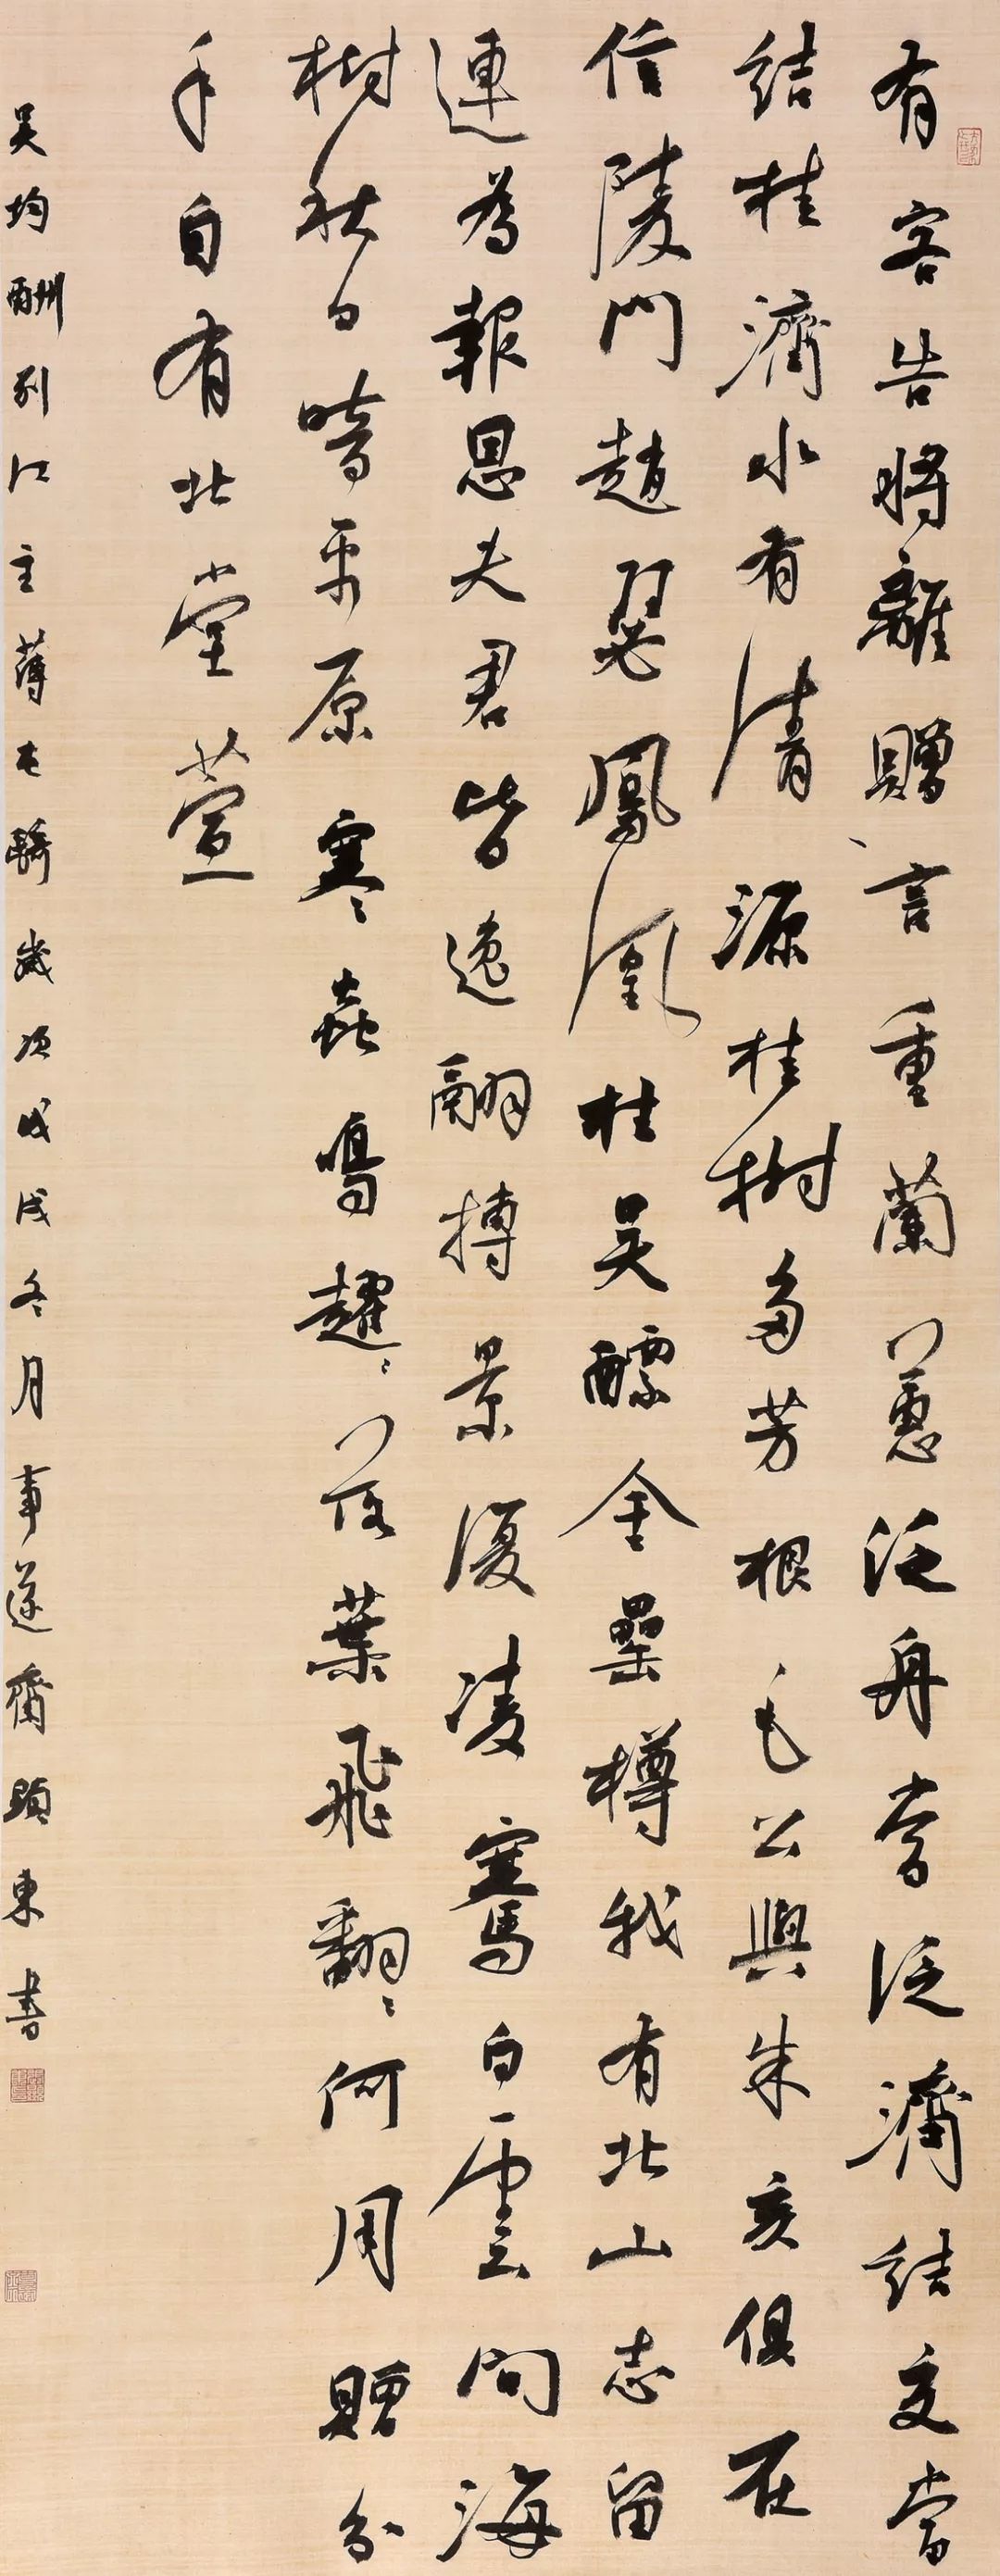 有客告將離贈言重蘭蕙泛舟當泛濟結交當
結桂濟水有清源桂樹多芳根毛公與朱亥俱在
信陵門趙瑟鳳凰柱吳醥金罍樽我有北山志留
連為報恩夫君皆逸翮摶景復凌騫白雲間海
樹秋日暗平原寒蟲鳴趯〻落葉飛翻〻何用贈分
手自有北堂萱
吳均酬別江主薄屯騎歲次戊戌冬月事齋東書